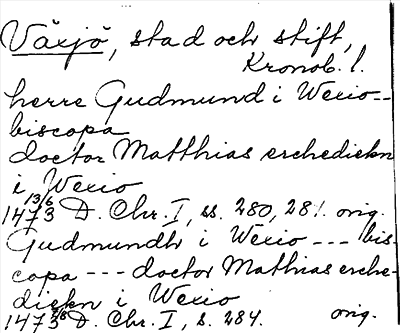 Växjö, stad och stift,
Kronob. l.
herre Gudmund i Wexio --
biscopa
doctor Matthias erchediekn
i Wexio
1473 13/6 D. Chr. I, ss. 280, 281. orig.
Gudmundh i Wexio --- bis-
copa --- doctor Mathias erche-
diekn i Wexio
1473 D. Chr. I, s. 284. orig.